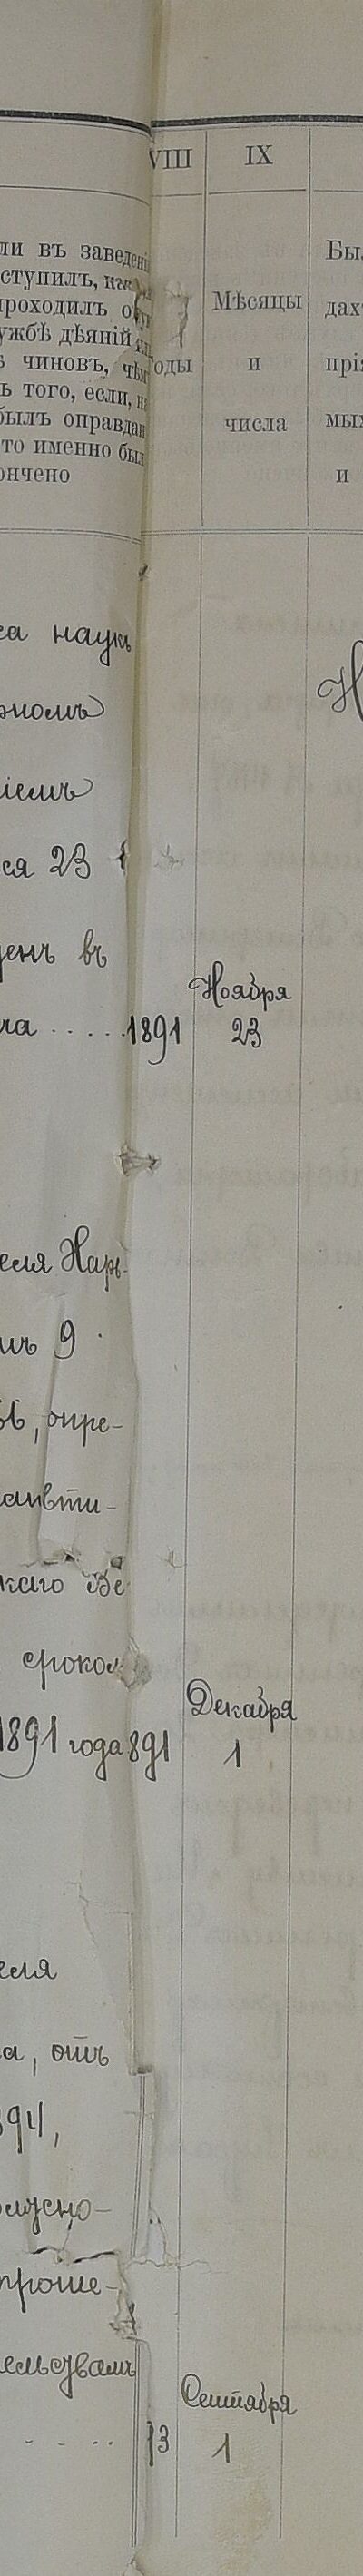 VIII IX
ли въ заведені
ступилъ,
проходилъ
ужбѣ дѣяній
ѣ чиновъ, чѣм
ь того, если, н
былъ оправдан
то именно был
ончено
оды
Мѣсяцы
и
числа
Бы
дах
прі
мы
и
са наукъ
рномъ
ніемъ
ся 23
щенъ въ
ла ..... 1891
Ноября
23
Н
еля Нарв-
мъ 9
опре-
каго Ве
сроком
1891 года 891
Декабря
1
еля
а, отъ
894,
проше-
ельсувамъ
..... 13
Сентября
1